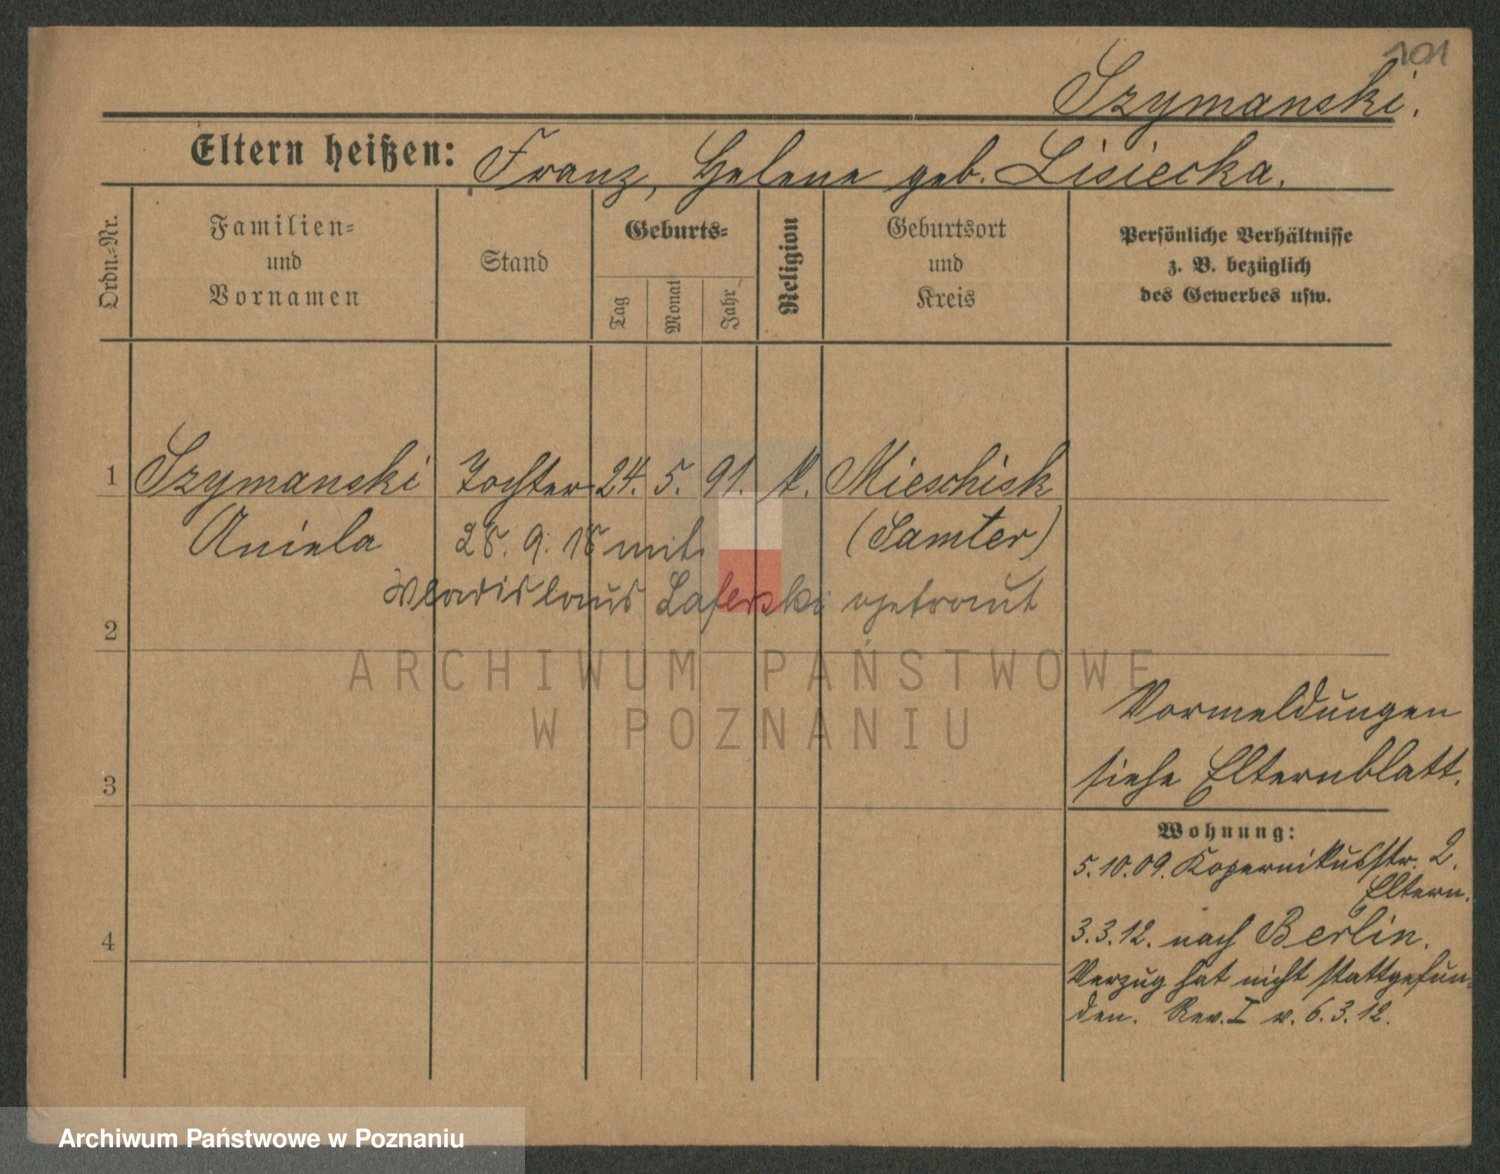 101
Szymanski.
Eltern heißen: Franz, Helene geb. Lisiecka.
Ordn.-Nr.
Familien-
und
Vornamen
Stand
Geburts-
Tag
Monat
Jahr
Religion
Geburtsort
und
Kreis
Persönliche Verhältnisse
z. B. bezüglich
des Gewerbes usw.
1 Szymanski Tochter 24. 5. 91. k. Mieschisk
Aniela 28. 9. 18 mit (Samter)
Wladislaus Laferski getraut
2
ARCHIWUM PAŃSTWOWE
W POZNANIU
Vormeldungen
siehe Elternblatt.
3
Wohnung:
5.10.09. Kopernikusstr. 2.
Eltern.
4
3.3.12. nach Berlin.
Verzug hat nicht stattgefun-
den. Rev. I v. 6.3.12.
Archiwum Państwowe w Poznaniu